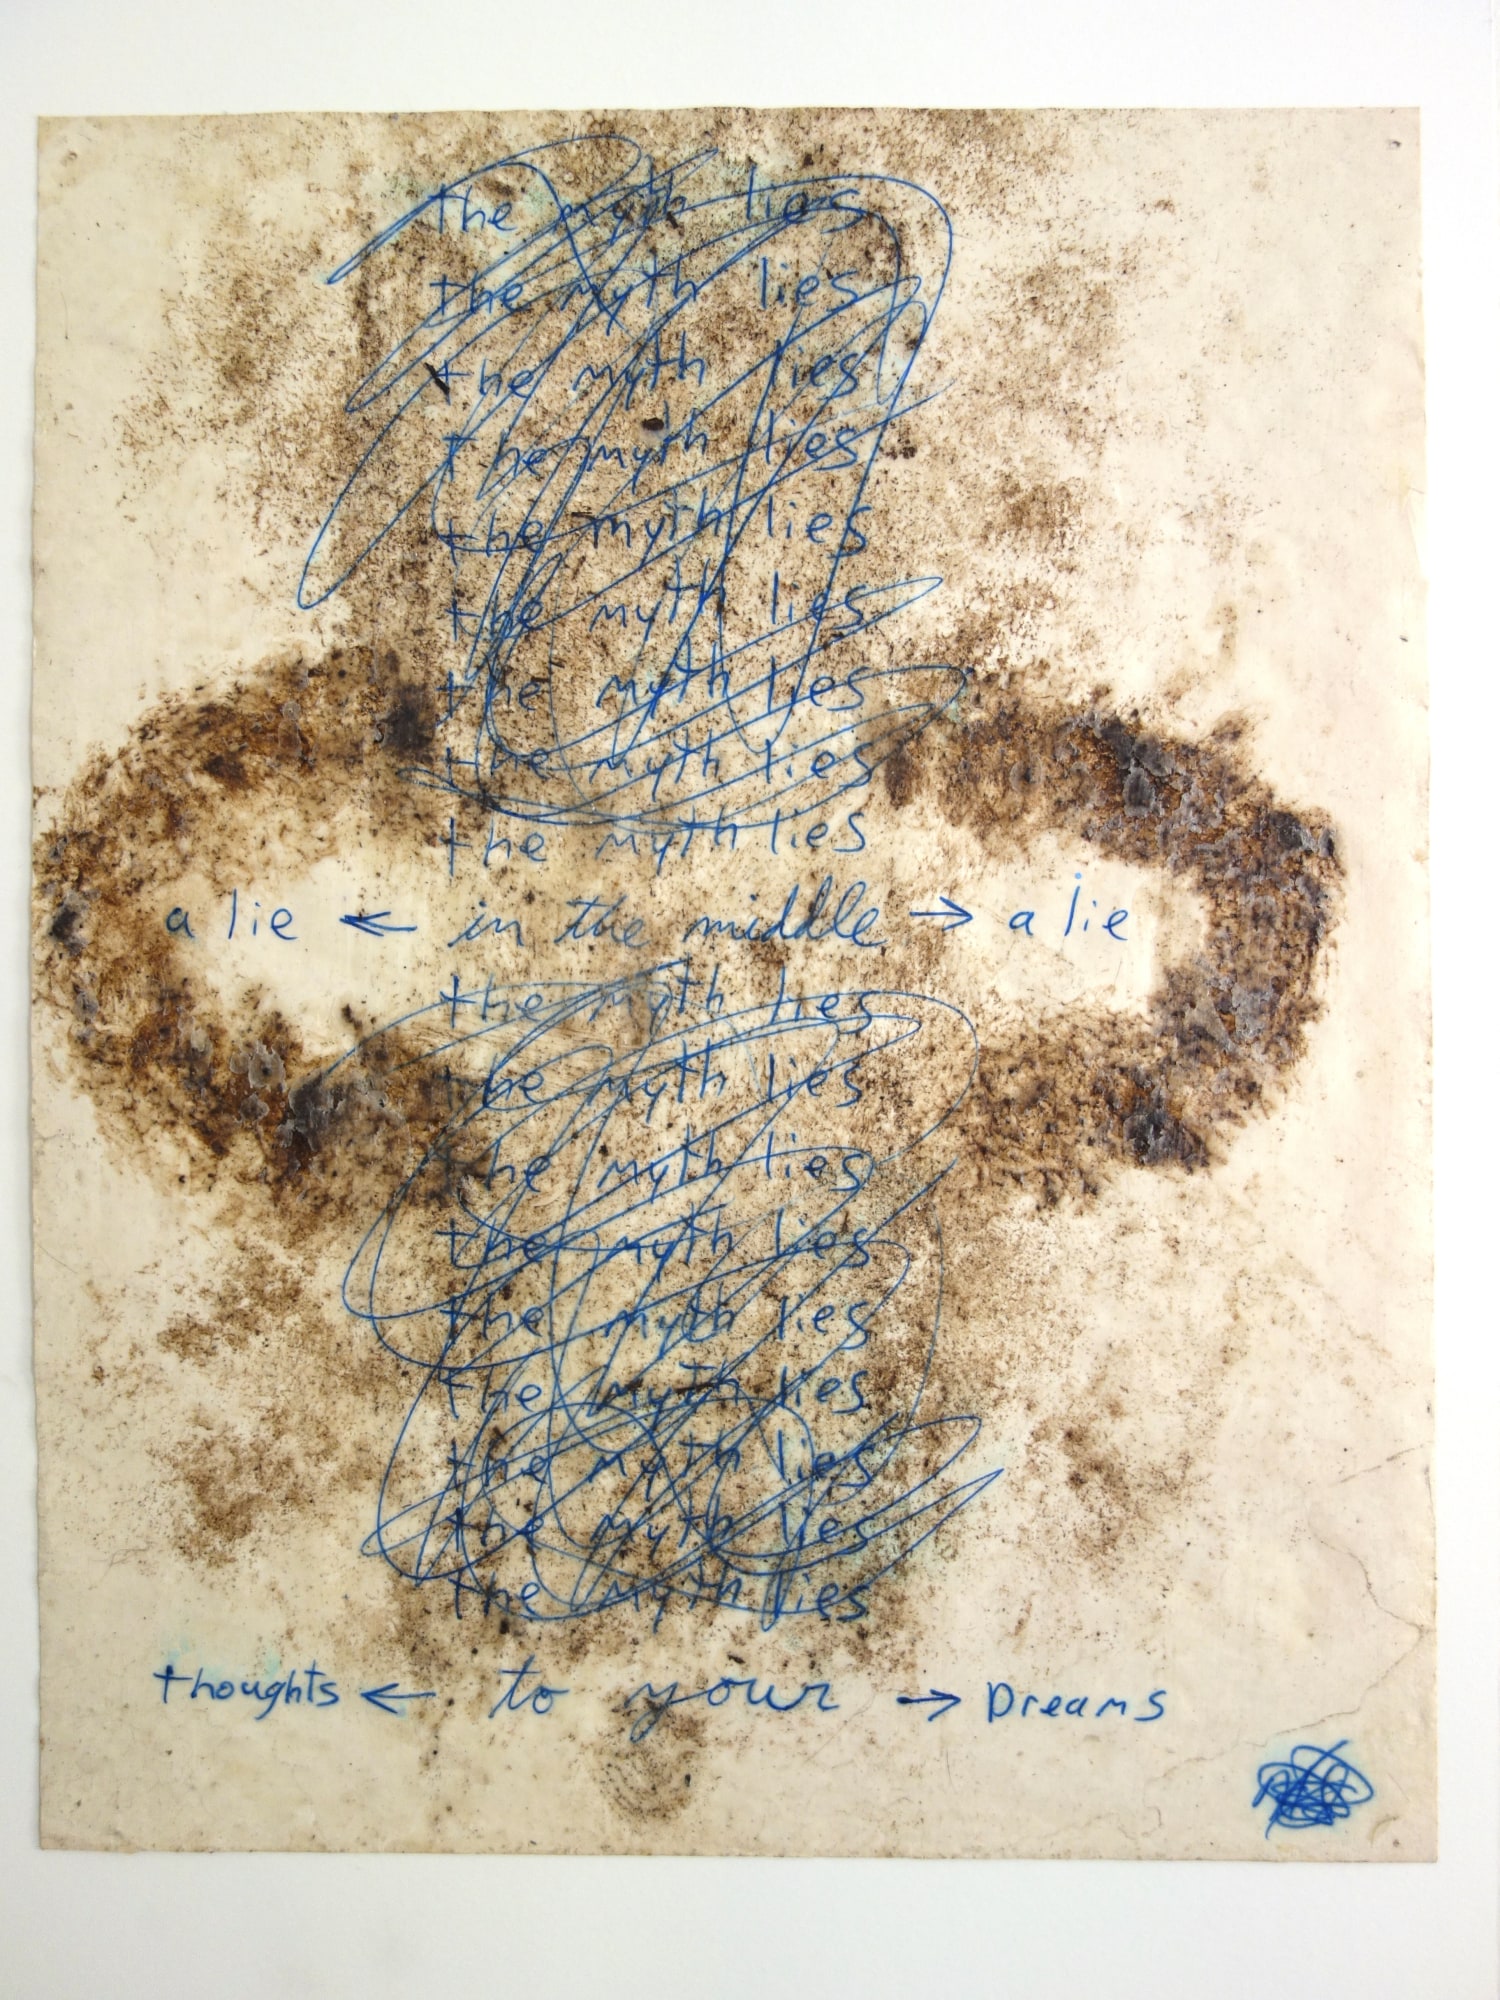 the myth lies
the myth lies
the myth lies
the myth lies
the myth lies
the myth lies
the myth lies
the myth lies
the myth lies
a lie ← in the middle → a lie
the myth lies
the myth lies
the myth lies
the myth lies
the myth lies
the myth lies
the myth lies
the myth lies
the myth lies
thoughts ← to your → Dreams